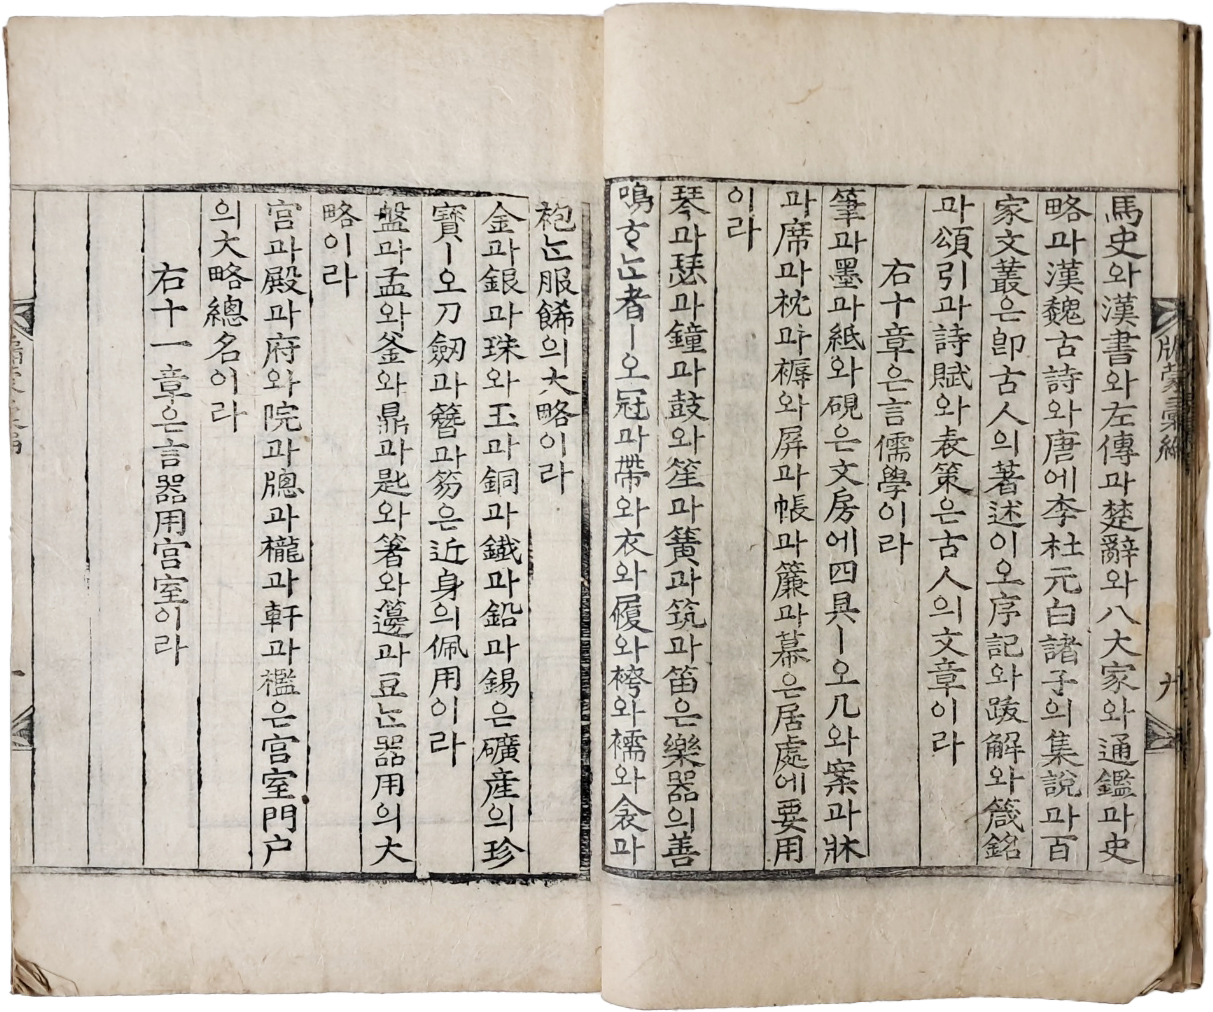 馬史와漢書와左傳과楚辭와八大家와通鑑과史
略과漢魏古詩와唐에李杜元白諸子의集說과百
家文叢은卽古人의著述이오序記와跋解와箴銘
과頌引과詩賦와表策은古人의文章이라
右十章은言儒學이라
筆과墨과紙와硯은文房에四具ㅣ오几와案과牀
과席과枕과褥와屛과帳과簾과幕은居處에要用
이라
琴과瑟과鐘과鼓와笙과簧과筑과笛은樂器의善
鳴ᄒᆞᄂᆞᆫ者ㅣ오冠과帶와衣와履와袴와襦와衾과
袍ᄂᆞᆫ服飾의大略이라
金과銀과珠와玉과銅과鐵과鉛과錫은礦産의珍
寶ㅣ오刀劒과簪과笏은近身의佩用이라
盤과盂와釜와鼎과匙와箸와籩과豆ᄂᆞᆫ器用의大
略이라
宮과殿과府와院과牕과櫳과軒과檻은宮室門户
의大略總名이라
右十一章은言器用宮室이라